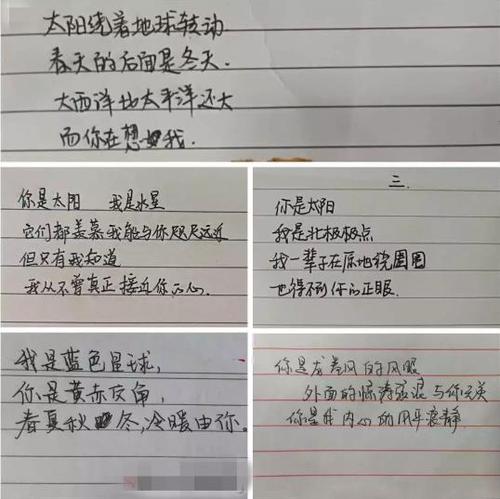 太阳绕着地球转动
春天的后面是冬天.
大西洋比太平洋还大
而你在想我.
你是太阳 我是水星
它们都羡慕我能与你咫尺远近
但只有我知道
我从不曾真正接近你的心.
三.
你是太阳
我是北极极点
我一辈子在原地绕圈圈
也得不到你的正眼.
我是蓝色星球,
你是黄赤交角,
春夏秋冬,冷暖由你.
你是龙卷风的风眼
外面的惊涛骇浪与你无关
你是我内心的风平浪静.